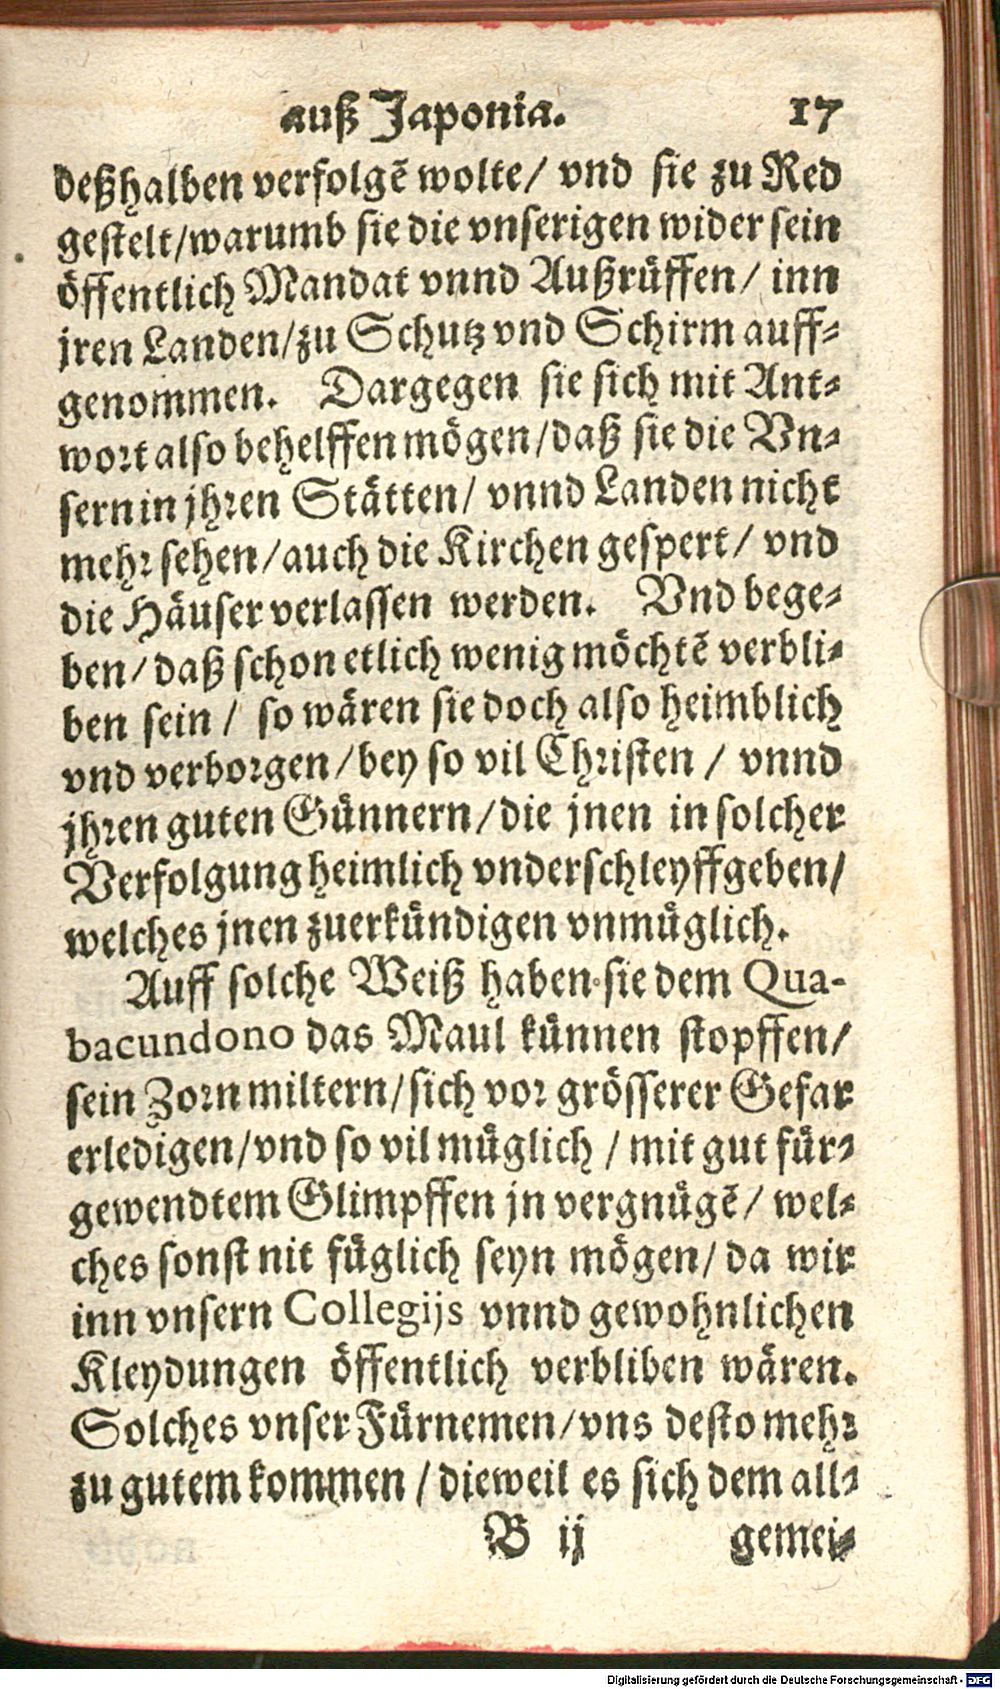 auß Japonia. 17
deßhalben verfolgẽ wolte/ vnd sie zu Red
gestelt/warumb sie die vnserigen wider sein
öffentlich Mandat vnnd Außrüffen/ inn
jren Landen/zu Schutz vnd Schirm auff-
genommen. Dargegen sie sich mit Ant-
wort also behelffen mögen/daß sie die Vn-
sern in jhren Stätten/ vnnd Landen nicht
mehr sehen/auch die Kirchen gespert/ vnd
die Häuser verlassen werden. Vnd bege-
ben/daß schon etlich wenig möchtẽ verbli-
ben sein/ so wären sie doch also heimblich
vnd verborgen/bey so vil Christen/ vnnd
jhren guten Günnern/die jnen in solcher
Verfolgung heimlich vnderschleyff geben/
welches jnen zuerkündigen vnmüglich.
Auff solche Weiß haben sie dem Qua-
bacundono das Maul künnen stopffen/
sein Zorn miltern/sich vor grösserer Gefar
erledigen/vnd so vil müglich/mit gut für-
gewendtem Glimpffen jn vergnügẽ/ wel-
ches sonst nit füglich seyn mögen/da wir
inn vnsern Collegijs vnnd gewohnlichen
Kleydungen öffentlich verbliben wären.
Solches vnser Fürnemen/vns desto mehr
zu gutem kommen/dieweil es sich dem all-
B ij gemei-
Digitalisierung gefördert durch die Deutsche Forschungsgemeinschaft - DFG